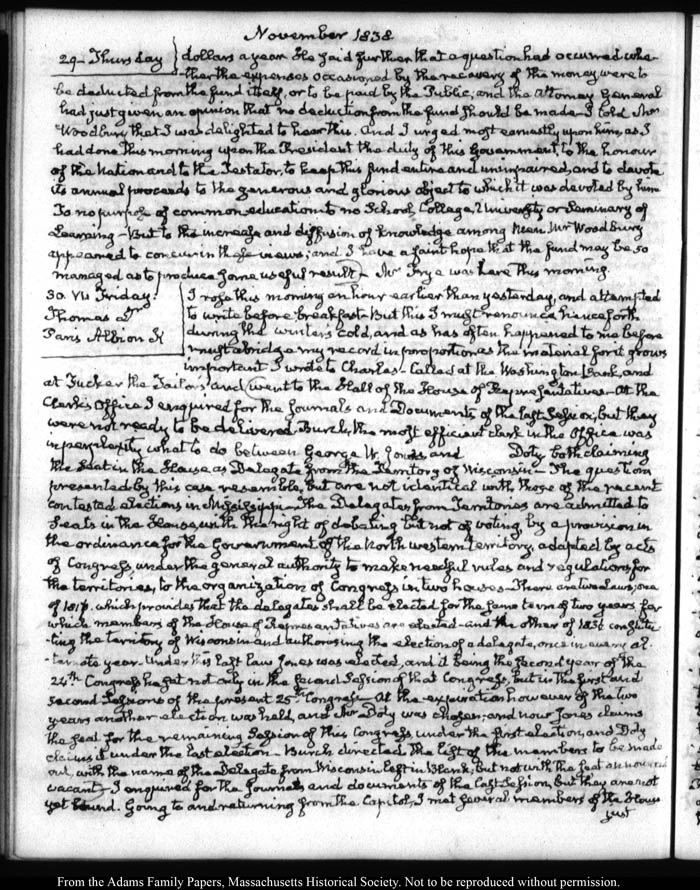 November 1838
29. Thursday } dollars a year. He said further that a question had occurred whe-
ther the expenses occasioned by the recovery of the money were to
be deducted from the fund itself, or to be paid by the Public; and the Attorney General
had just given an opinion that no deduction from the fund should be made. I told Mr
Woodbury that I was delighted to hear this. And I urged most earnestly upon him, as I
had done this morning upon the President the duty of this Government, to the honour
of the Nation and to the Testator, to keep this fund entire and unimpaired, and to devote
its annual proceeds to the generous and glorious object to which it was devoted by him
To no purpose of common education to no School, College, University or Seminary of
Learning – But to the increase and diffusion of knowledge among Men. Mr Woodbury
appeared to concur in these views; and I have a faint hope that the fund may be so
managed as to produce some useful result – Mr Frye was here this morning.
30. VI. Friday.
Thomas
Paris Albion K
I rose this morning an hour earlier than yesterday, and attempted
to write before breakfast. But this I must renounce henceforth
during the winter's cold, and as has often happened to me before
must abridge my record in proportion as the material for it grows
important. I wrote to Charles – Called at the Washington Bank, and
at Tucker the Tailor's and went to the Hall of the House of Representatives – At the
Clerk's Office I enquired for the Journals and Documents of the last Session, but they
were not ready to be delivered. Burch, the most efficient clerk in the Office was
in perplexity what to do between George W. Jones and Doty both claiming
the Seat in the House as Delegate from the Territory of Wisconsin – The questions
presented by this case resemble, but are not identical with those of the recent
contested elections in Mississippi – The Delegates from Territories are admitted to
Seats in the House, with the right of debating but not of voting, by a provision in
the ordinance for the Government of the North western territory, adapted by acts
of Congress, under the general authority to make needful rules and regulations for
the territories, to the organization of Congress in two houses – There are two Laws, one
of 1817. which provides that the delegates shall be elected for the same term of two years for
which members of the House of Representatives are elected – and the other of 1836 constitu-
-ting the territory of Wisconsin and authorising the election of a delegate, once in every al-
-ternate year. Under this last law Jones was elected, and it being the second year of the
24th Congress he sat not only in the second Session of that Congress, but in the first and
second Sessions of the present 25th Congress – At the expiration however of the two
years another election was held, and Mr Doty was chosen; and now Jones claims
the seat for the remaining Session of this Congress, under the first election, and Doty
claims it under the last election – Burch directed the list of the members to be made
out, with the name of the Delegate from Wisconsin left in blank, but not with the seat announced
vacant – I enquired for the Journals and documents of the last Session, but they are not
yet bound. Going to and returning from the Capitol, I met several members of the House
just
From the Adams Family Papers, Massachusetts Historical Society. Not to be reproduced without permission.